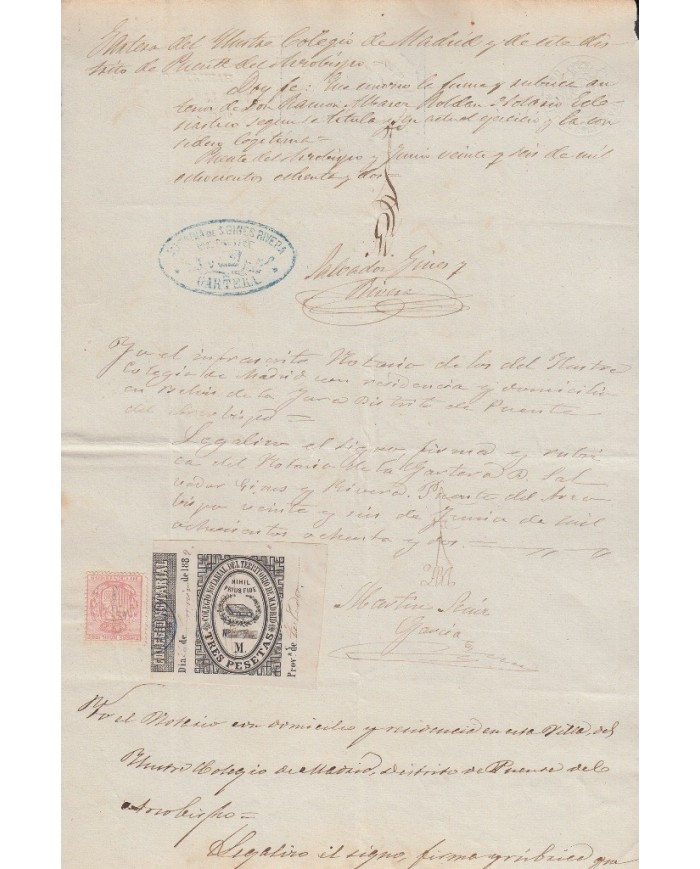 del Ilustre Colegio de Madrid y de este dis
trito de Puente del Arzobispo =
Doy fe: Que conozco la firma y rubrica an
terior de Don Ramon Alvarez Roldan Notario Ecle-
siastico segun se titula y en actual ejercicio y la con
sidero legitima =
Puente del Arzobispo y Junio veinte y seis de mil
ochocientos ochenta y dos =
NOTARIA DE S. GINES RIVERA
LAGARTERA
Salvador Gines y
Rivera
Yo el infrascrito Notario de los del Ilustre
Colegio de Madrid con residencia y domicilio
en Belvis de la Jara Distrito de Puente
del Arzobispo =
Legalizo el signo firma y rubri
ca del Notario de la Gartera D. Sal
vador Gines y Rivera. Puente del Arzo
bispo veinte y seis de Junio de mil
ochocientos ochenta y dos.
Martin Ruiz
Garcia
COLEGIO NOTARIAL
Dia de de 188
COLEGIO NOTARIAL DEL TERRITORIO DE MADRID
NIHIL PRIUS FIDE
M.
TRES PESETAS
Prov.ª de Toledo
Yo el Notario con domicilio y residencia en esta Villa, del
Ilustre Colegio de Madrid, Distrito de Puente del
Arzobispo =
Legalizo el signo, firma y rúbrica que